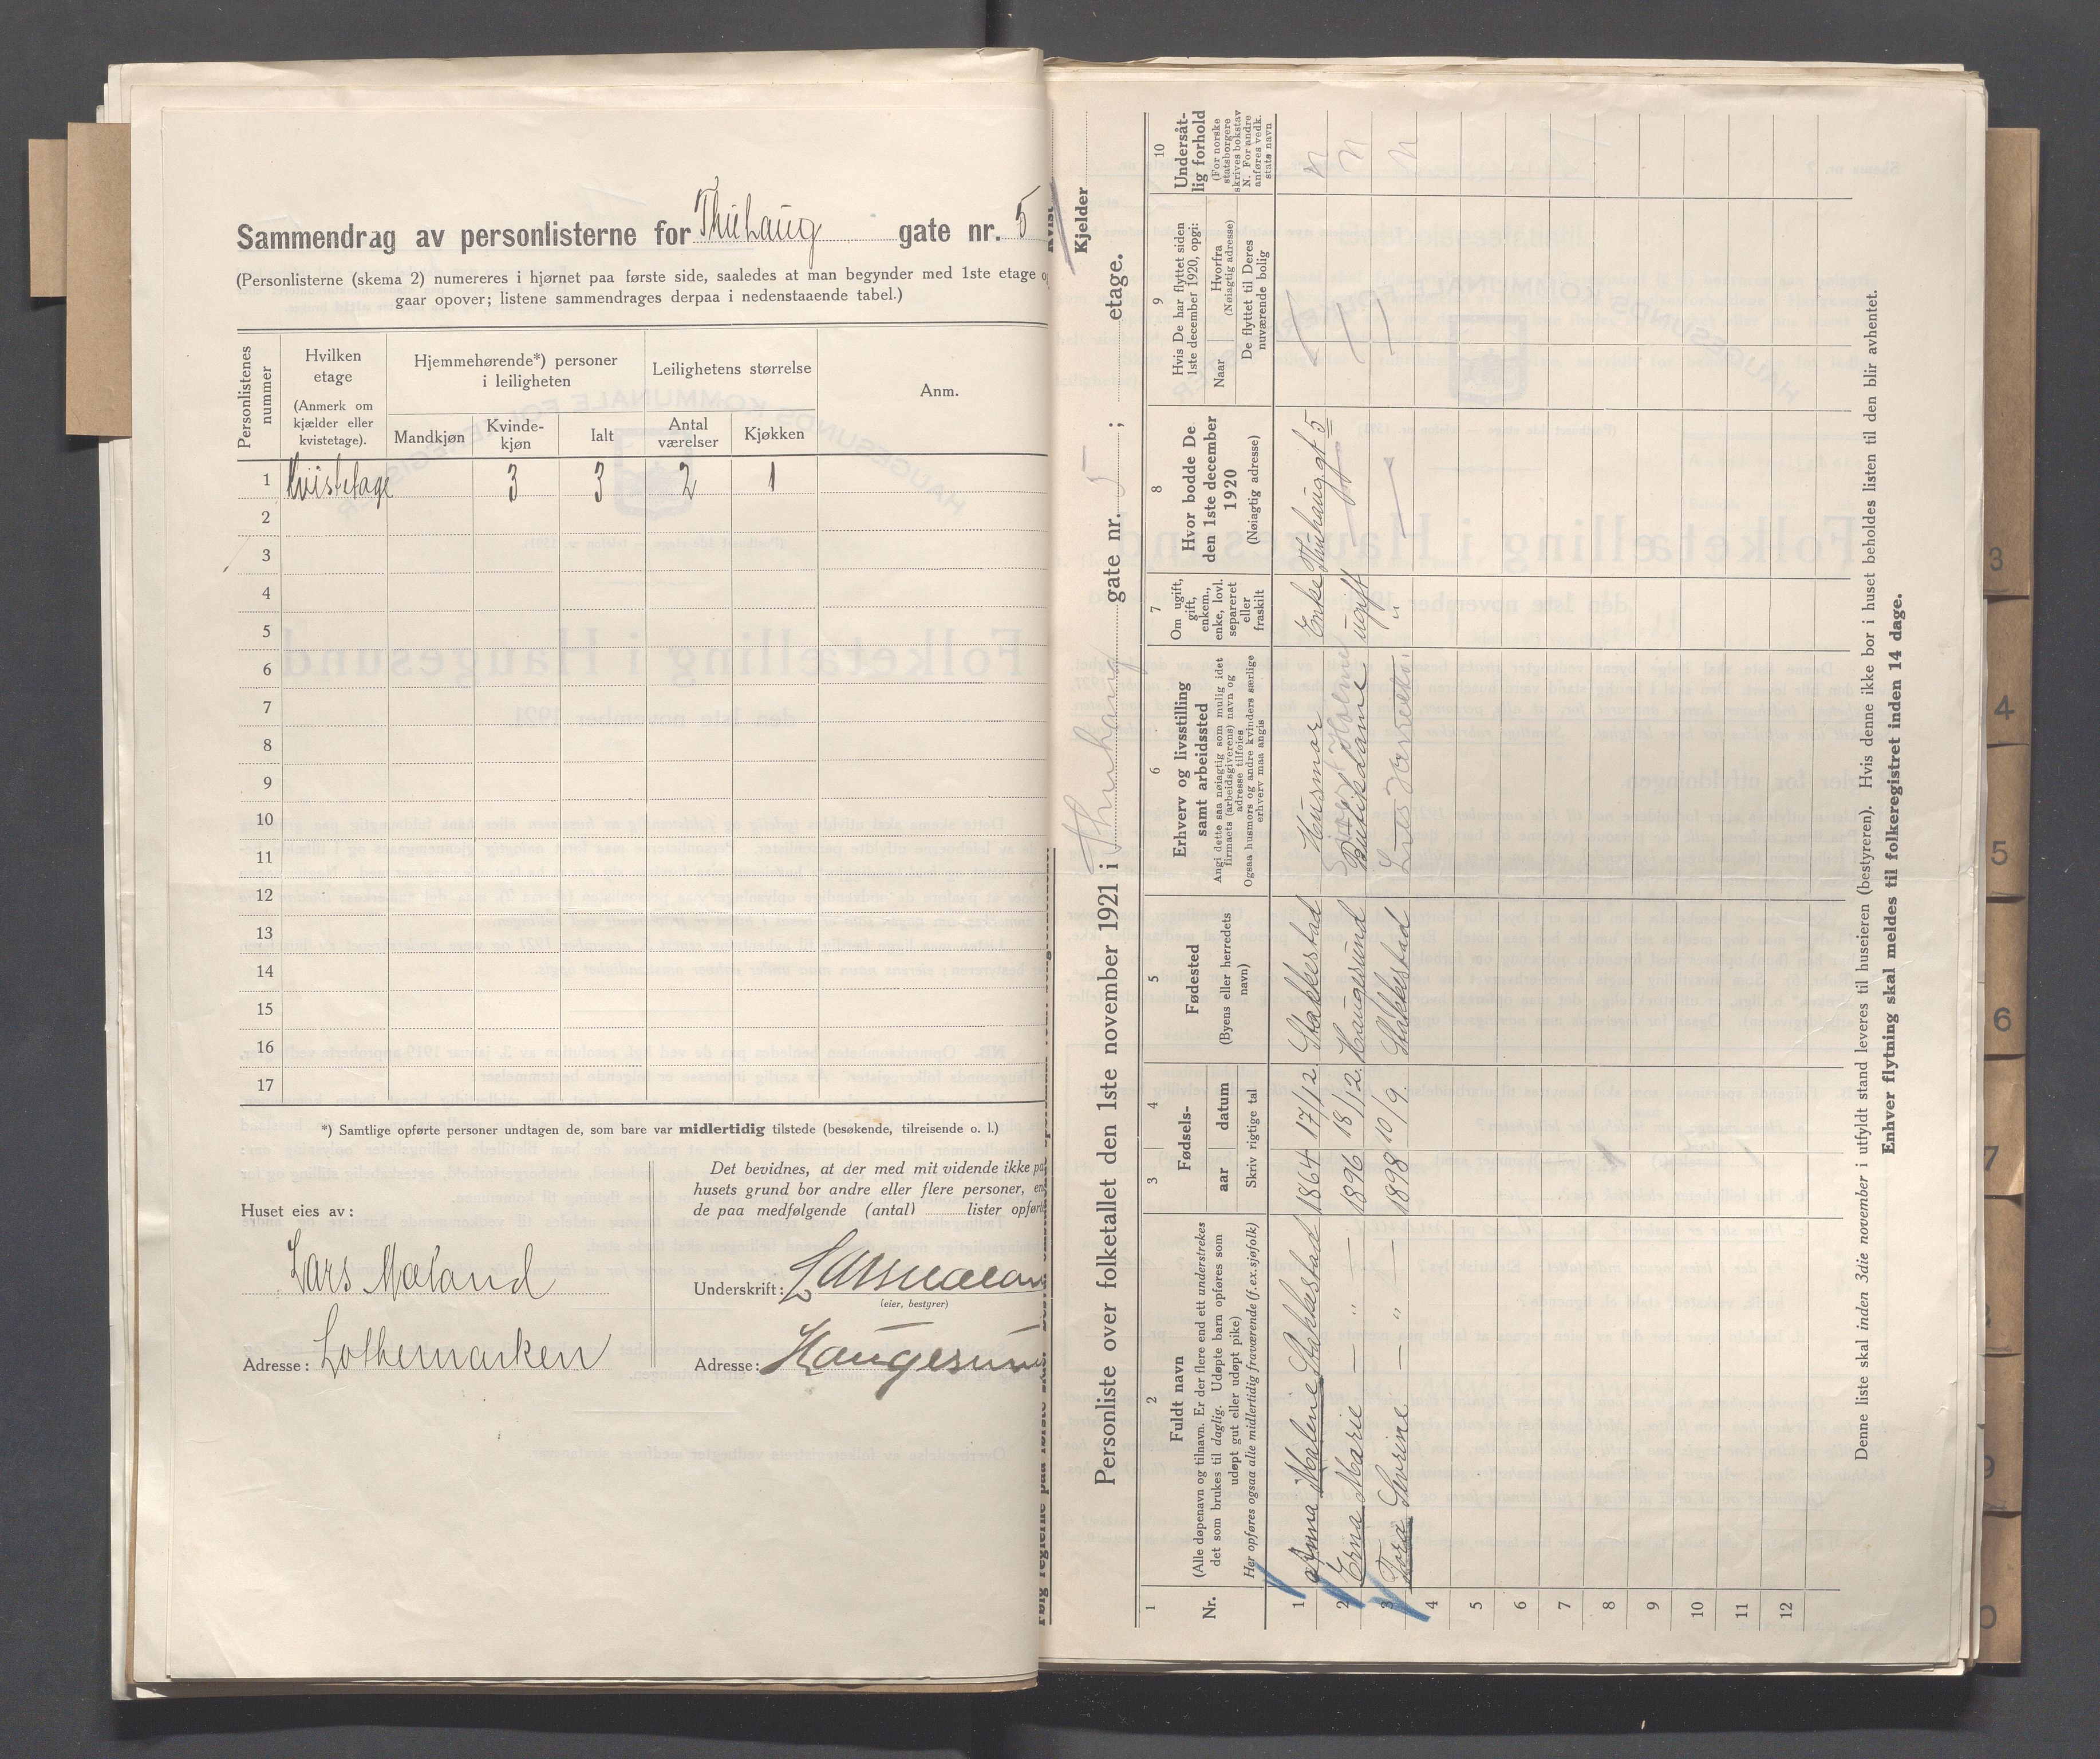 Sammendrag av personlisterne for Thuhaug gate nr. 5
(Personlisterne (skema 2) numereres i hjørnet paa første side, saaledes at man begynder med 1ste etage
gaar opover; listene sammendrages derpaa i nedenstaaende tabel.)
Personlistenes nummer
Hvilken etage
(Anmerk om kjælder eller kvistetage).
Hjemmehørende*) personer i leiligheten
Leilighetens størrelse
Anm.
Mandkjøn
Kvindekjøn
Ialt
Antal værelser
Kjøkken
1 Kvistetage 3 3 2 1
2
3
4
5
6
7
8
9
10
11
12
13
14
15
16
17
*) Samtlige opførte personer undtagen de, som bare var midlertidig tilstede (besøkende, tilreisende o. l.)
Huset eies av:
Lars Mæland
Adresse: Lothemarken
Det bevidnes, at der med mit vidende ikke
husets grund bor andre eller flere personer,
de paa medfølgende (antal) lister
Underskrift:
(eier, bestyrer)
Adresse:
Kjelder
Personliste over folketallet den 1ste november 1921 i Thuhaug gate nr. 5 ; etage.
1
Nr.
2
Fuldt navn
(Alle døpenavn og tilnavn. Er der flere end ett understrekes
det som brukes til daglig. Udøpte barn opføres som
udøpt gut eller udøpt pike)
Her opføres ogsaa alle midlertidig fraværende (f. ex. sjøfolk)
3 4
Fødsels-
aar datum
Skriv rigtige tal
5
Fødested
(Byens eller herredets
navn)
6
Erhverv og livsstilling
samt arbeidssted
Angi dette saa nøiagtig som mulig idet
firmaets (arbeidsgiverens) navn og
adresse tilføies
Ogsaa husmors og andre kvinders særlige
erhverv maa angis
7
Om ugift,
gift,
enkem.,
enke, lovl.
separeret
eller
fraskilt
8
Hvor bodde De
den 1ste december
1920
(Nøiagtig adresse)
9
Hvis De har flyttet siden
1ste december 1920, opgi:
Naar
Hvorfra
(Nøiagtig adresse)
De flyttet til Deres
nuværende bolig
10
Undersåt-
lig forhold
(For norske
statsborgere
skrives bokstav
N. For andre
anføres vedk.
stats navn
1 Anna Malene Stakkestad 1864 17/12 Stakkestad Husmor Enke Thuhauggt 5 n
2 Erna Marie — " — 1896 18/12 Haugesund Butikdame ugift n
3 Tora Sevrine — " — 1898 10/9. Stakkestad " n
4
5
6
7
8
9
10
11
12
Denne liste skal inden 3die november i utfyldt stand leveres til huseieren (bestyreren). Hvis denne ikke bor i huset beholdes listen til den blir avhentet.
Enhver flytning skal meldes til folkeregistret inden 14 dage.
3
4
5
6
7
9